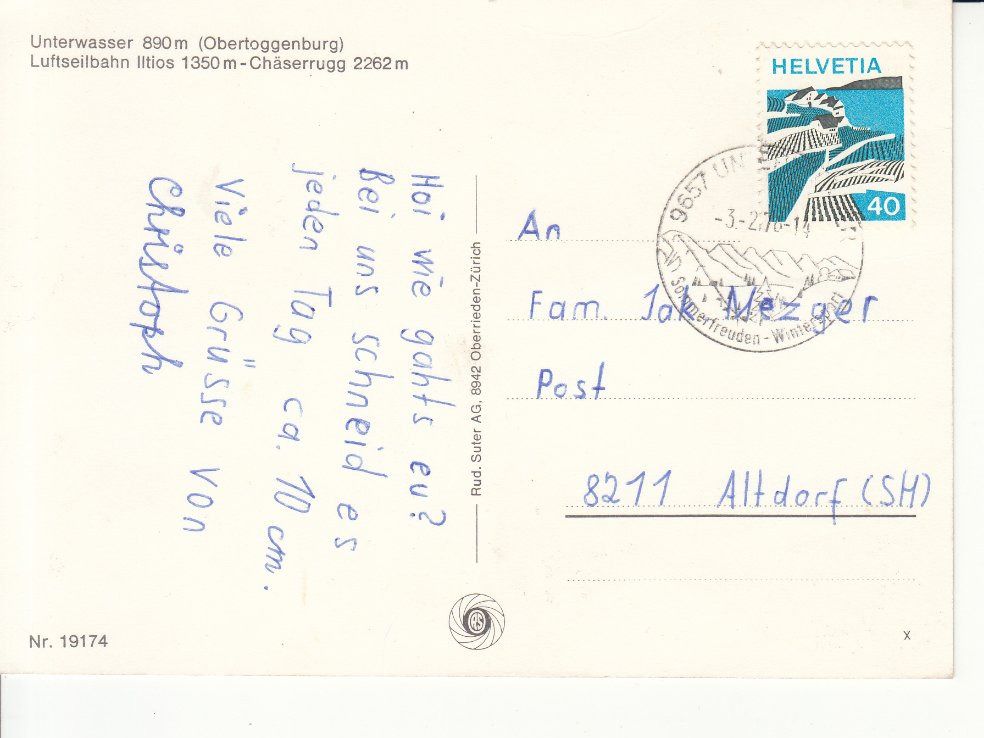 Unterwasser 890 m (Obertoggenburg)
Luftseilbahn Iltios 1350 m - Chäserrugg 2262 m
Hoi wie gahts eu?
Bei uns schneid es
jeden Tag ca. 10 cm.
Viele Grüsse von
Christoph
Rud. Suter AG, 8942 Oberrieden-Zürich
HELVETIA
40
9657 UN
-3.-2.76-14
Sommerfreuden - Wintersport
An
Fam. Jak. Mezger
Post
8211 Altdorf (SH)
Nr. 19174
X